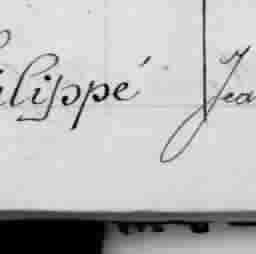 ilippé Jea